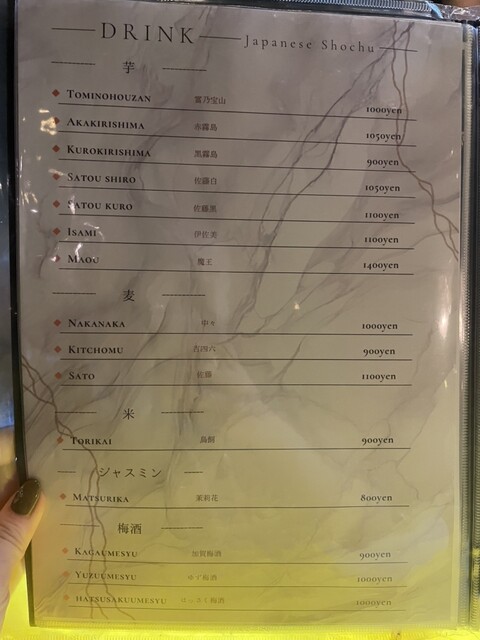 DRINK Japanese Shochu
芋
Tominohouzan 富乃宝山 1000yen
Akakirishima 赤霧島 1050yen
Kurokirishima 黒霧島 900yen
Satou shiro 佐藤白 1050yen
Satou kuro 佐藤黒 1100yen
Isami 伊佐美 1100yen
Maou 魔王 1400yen
麦
Nakanaka 中々 1000yen
Kitchomu 吉四六 900yen
Sato 佐藤 1100yen
米
Torikai 鳥飼 900yen
ジャスミン
Matsurika 茉莉花 800yen
梅酒
Kagaumesyu 加賀梅酒 900yen
Yuzuumesyu ゆず梅酒 1000yen
hatsusakuumesyu はっさく梅酒 1000yen